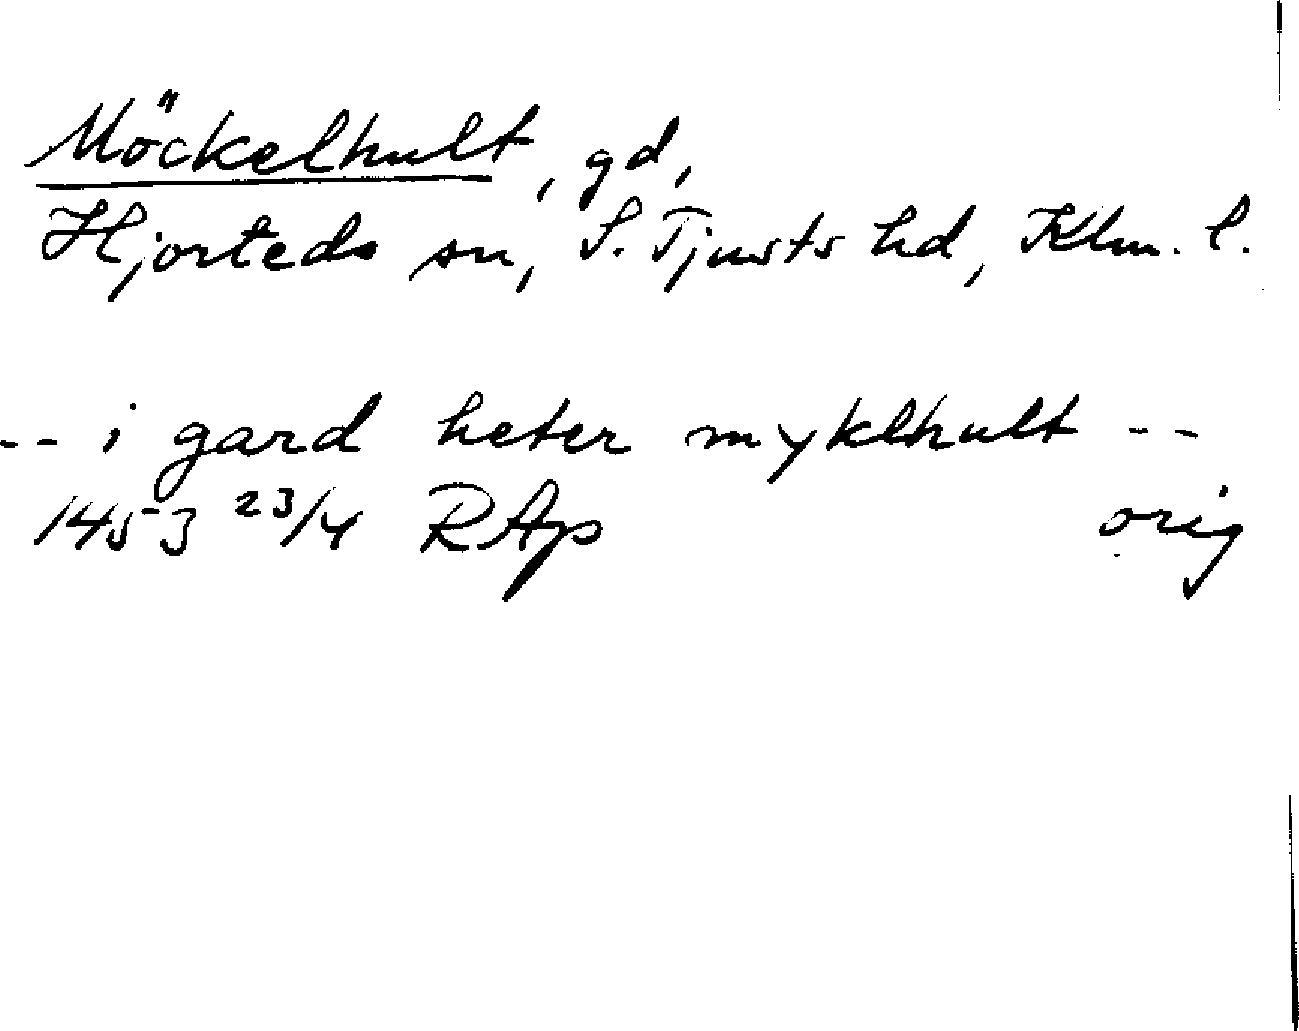 Möckelhult, gd,
Hjorteds sn, S. Tjusts hd, Klm. l.
-- i gard heter myklhult --
1453 23/4 RAp orig